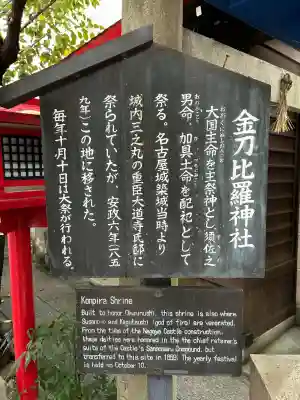 金刀比羅神社
大国主命を主祭神とし須佐之
男命、加具土命を配祀として
祭る。名古屋城築城当時より
城内三之丸の重臣大道寺氏邸に
祭られていたが、安政六年(一八五
九年)この地に移された。
毎年十月十日は大祭が行われる。
Konpira Shrine
Built to honor Okuninushi, this shrine is also where
Susano-o and Kagutsuchi (god of fire) are venerated.
From the time of the Nagoya Castle construction,
these deities were honored in the the chief retainer's
suite of the Castle's Sannomaru Compound but
transferred to this site in 1859. The yearly festival
is held on October 10.